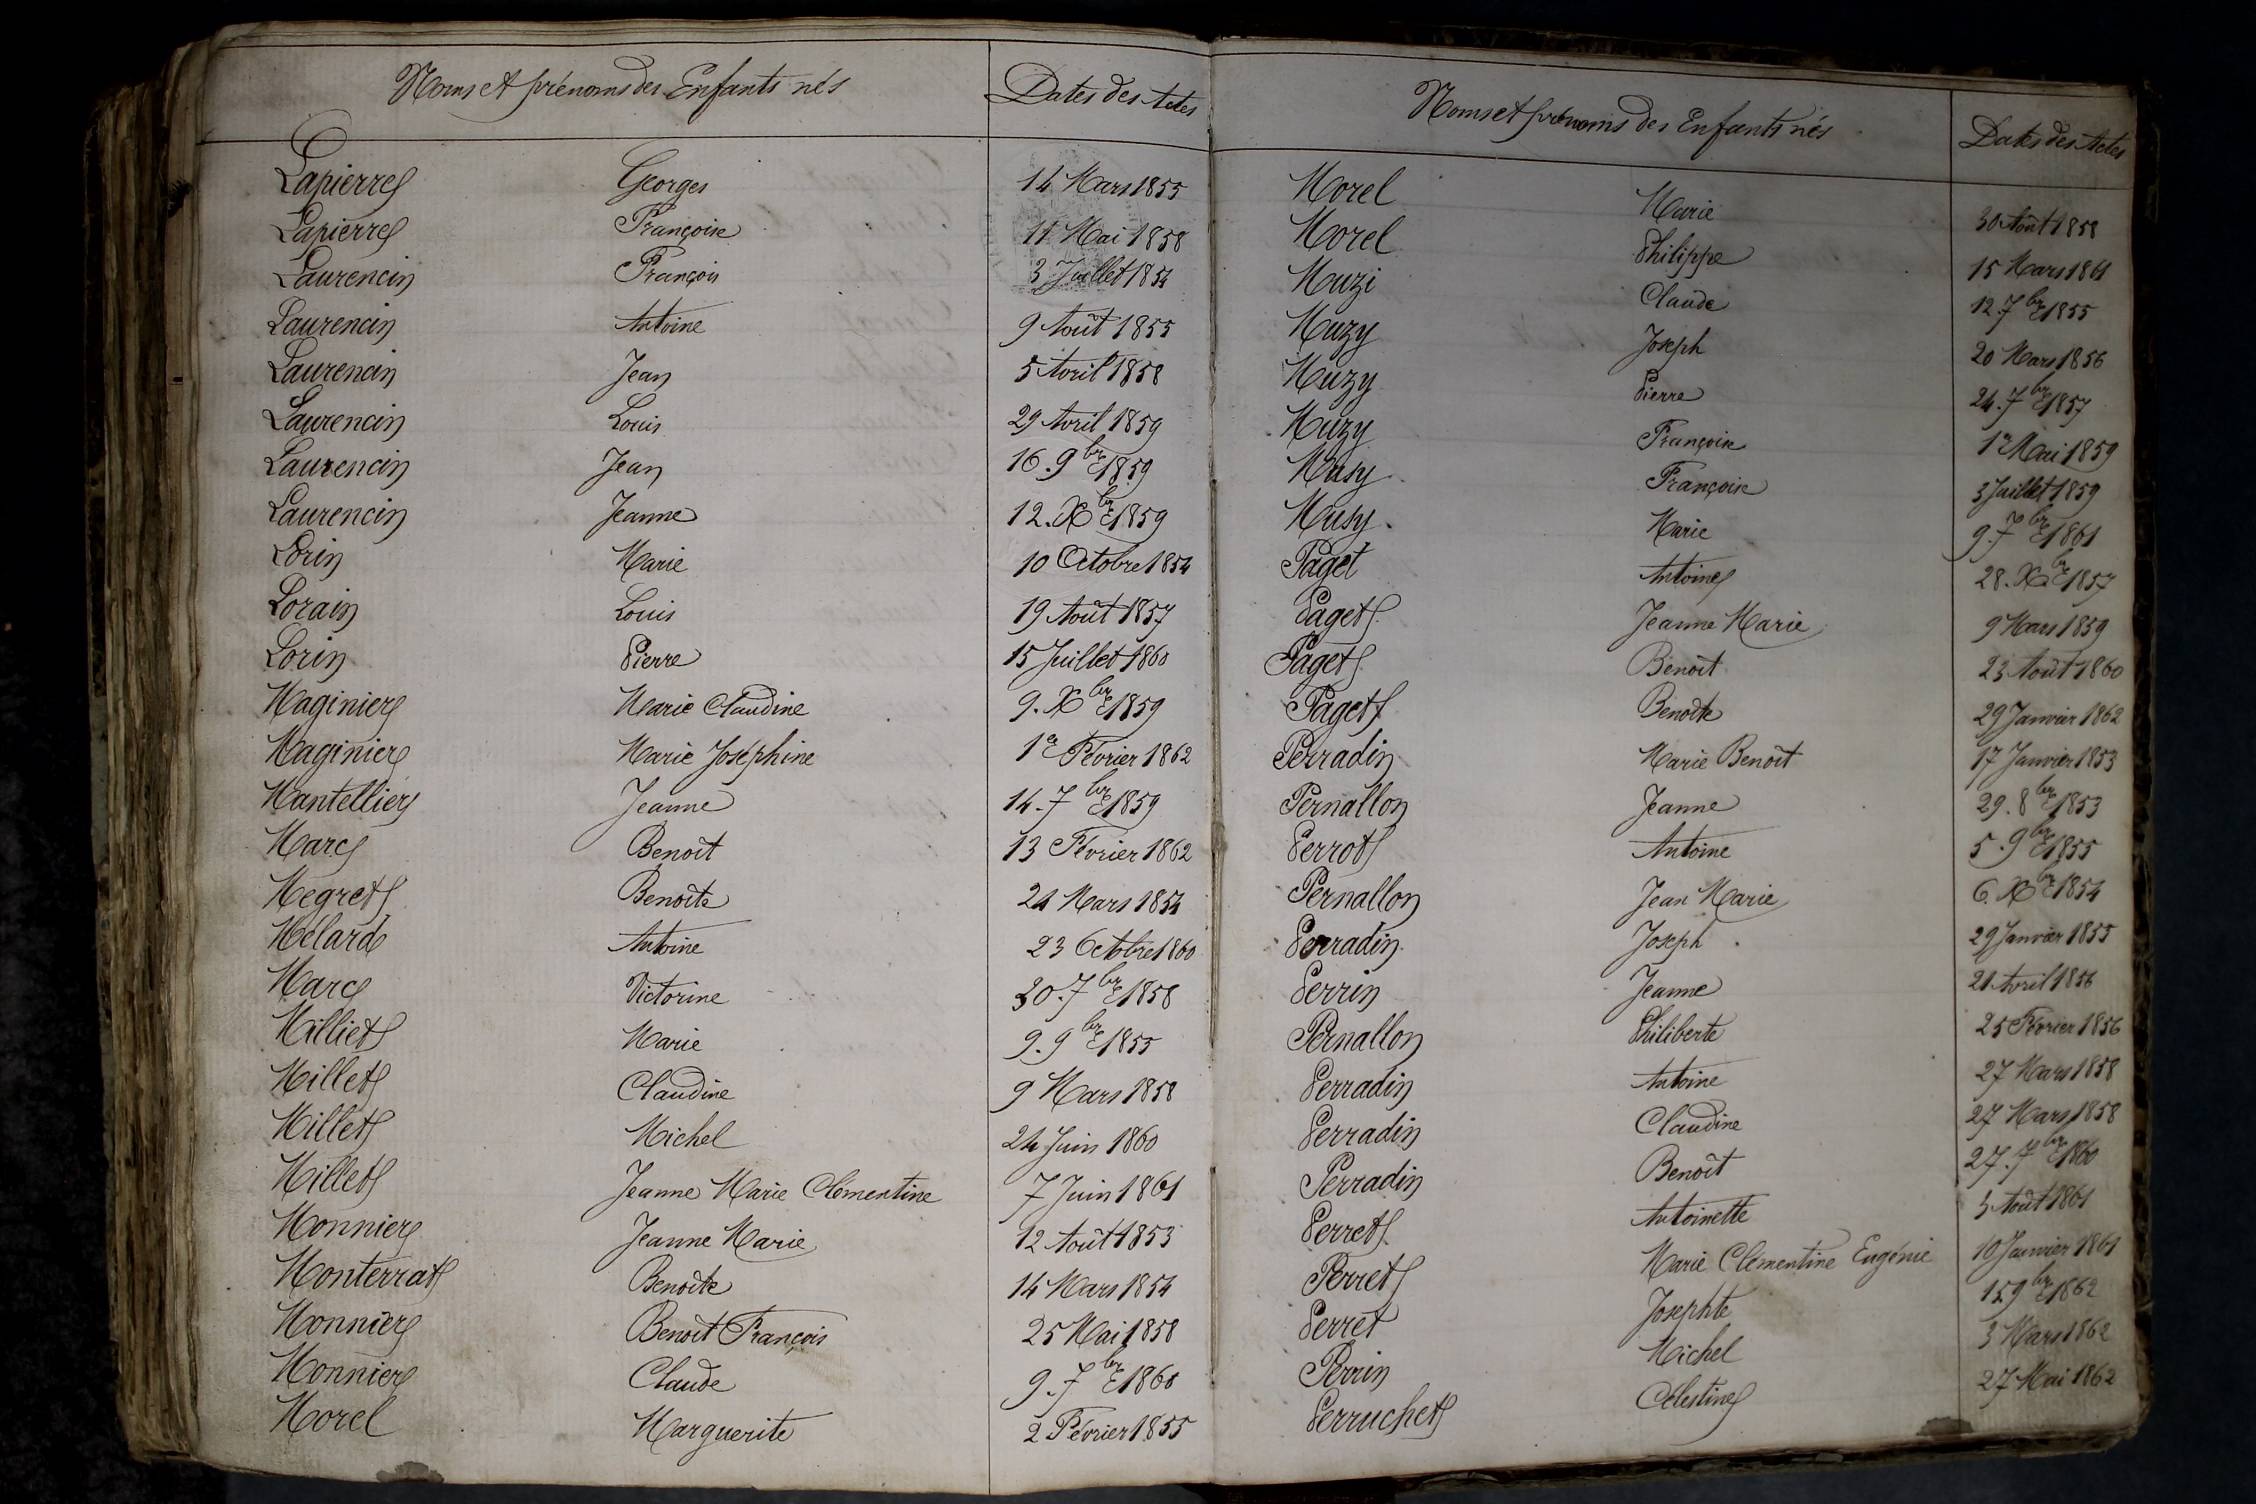 Noms et prénoms des Enfants nés Dates des Actes
Lapierre Georges 14 Mars 1855
Lapierre Françoise 11 Mai 1858
Laurencin François 3 Juillet 1854
Laurencin Antoine 9 Août 1855
Laurencin Jean 5 Avril 1858
Laurencin Louis 29 Avril 1859
Laurencin Jean 16. 9bre 1859
Laurencin Jeanne 12. Xbre 1859
Lorin Marie 10 Octobre 1854
Lorain Louis 19 Août 1857
Lorin Pierre 15 Juillet 1860
Maginier Marie Claudine 9. Xbre 1859
Maginier Marie Joséphine 1er Février 1862
Mantellier Jeanne 14. 7bre 1859
Marc Benoît 13 Février 1862
Megret Benoîte 24 Mars 1854
Mélard Antoine 23 Octobre 1860
Marc Victorine 30. 7bre 1858
Milliet Marie 9. 9bre 1855
Millet Claudine 9 Mars 1858
Millet Michel 24 Juin 1860
Millet Jeanne Marie Clémentine 7 Juin 1861
Monnier Jeanne Marie 12 Août 1853
Monterrat Benoîte 14 Mars 1854
Monnier Benoît François 25 Mai 1858
Monnier Claude 9. 7bre 1860
Morel Marguerite 2 Février 1855
Noms et prénoms des Enfants nés Dates des Actes
Morel Marie 30 Août 1858
Morel Philippe 15 Mars 1861
Muzi Claude 12. 7bre 1855
Muzy Joseph 20 Mars 1856
Muzy Pierre 24. 7bre 1857
Muzy Françoise 1er Mai 1859
Musy Françoise 3 Juillet 1859
Musy. Marie 9. 7bre 1861
Paget Antoine 28. Xbre 1857
Paget Jeanne Marie 9 Mars 1859
Paget Benoît 23 Août 1860
Paget Benoîte 29 Janvier 1862
Perradin Marie Benoît 17 Janvier 1853
Pernallon Jeanne 29. 8bre 1853
Perrot Antoine 5. 9bre 1855
Pernallon Jean Marie 6. Xbre 1854
Perradin Joseph 29 Janvier 1855
Perrin Jeanne 21 Avril 1856
Pernallon Philiberte 25 Février 1856
Perradin Antoine 27 Mars 1858
Perradin Claudine 27 Mars 1858
Perradin Benoît 27. 7bre 1860
Perret Antoinette 3 Août 1861
Perret Marie Clémentine Eugénie 10 Janvier 1861
Perret Josephte 9bre 1862
Perrin Michel 3 Mars 1862
Perruchet Célestine 27 Mai 1862